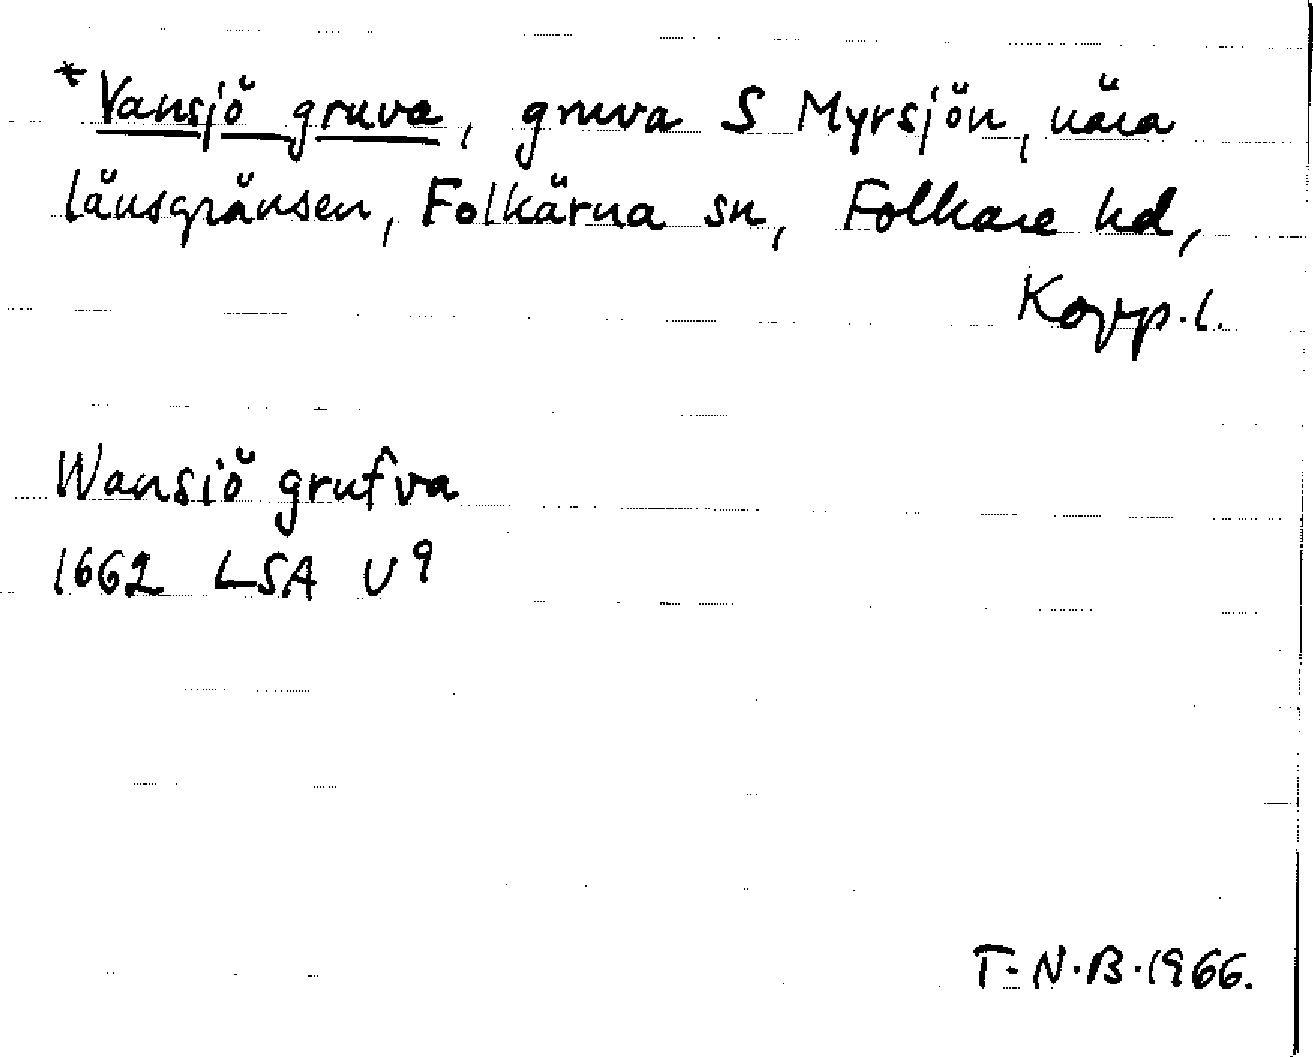 *Vansjö gruva, gruva S Myrsjön, nära
länsgränsen, Folkärna sn, Folkare hd,
Kopp.l.
Wansiö grufva
1662 LSA U9
T.N.B.1966.